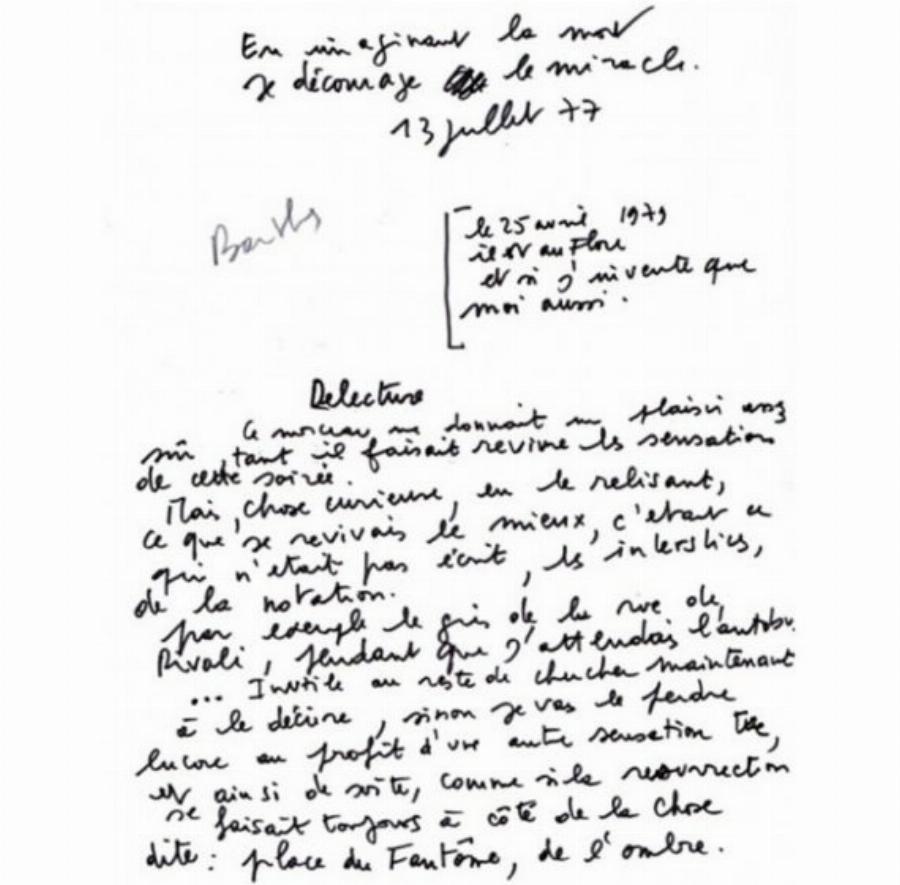 En imaginant la mort
je décourage le miracle.
13 juillet 77
Barthes
le 25 avril 1979
il est au Flore
et si j'invente que
moi aussi.
Délecture
Ce morceau me donnait un plaisir assez
sûr, tant il faisait revivre les sensations
de cette soirée.
Mais, chose curieuse, en le relisant,
ce que je revivais le mieux, c'était ce
qui n'était pas écrit, les interstices,
de la notation.
par exemple le gris de la rue de
Rivoli, pendant que j'attendais l'autobus.
... Inutile au reste de chercher maintenant
à le décrire, sinon je vas le perdre
encore au profit d'une autre sensation tue,
et ainsi de suite, comme si la resurrection
se faisait toujours à côté de la chose
dite : place du Fantôme, de l'ombre.